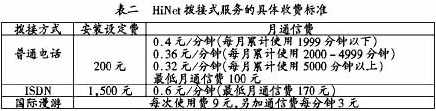 表二 HiNet 拨接式服务的具体收费标准
拨接方式 安装设定费 月通信费
普通电话 200 元 0.4 元/分钟(每月累计使用 1999 分钟以下)
0.36 元/分钟(每月累计使用 2000-4999 分钟)
0.32 元/分钟(每月累计使用 5000 分钟以上)
最低月通信费 100 元
ISDN 1,500 元 0.6 元/分钟(最低月通信费 170 元)
国际漫游 每次使用费 9 元,另加通信费每分钟 3 元